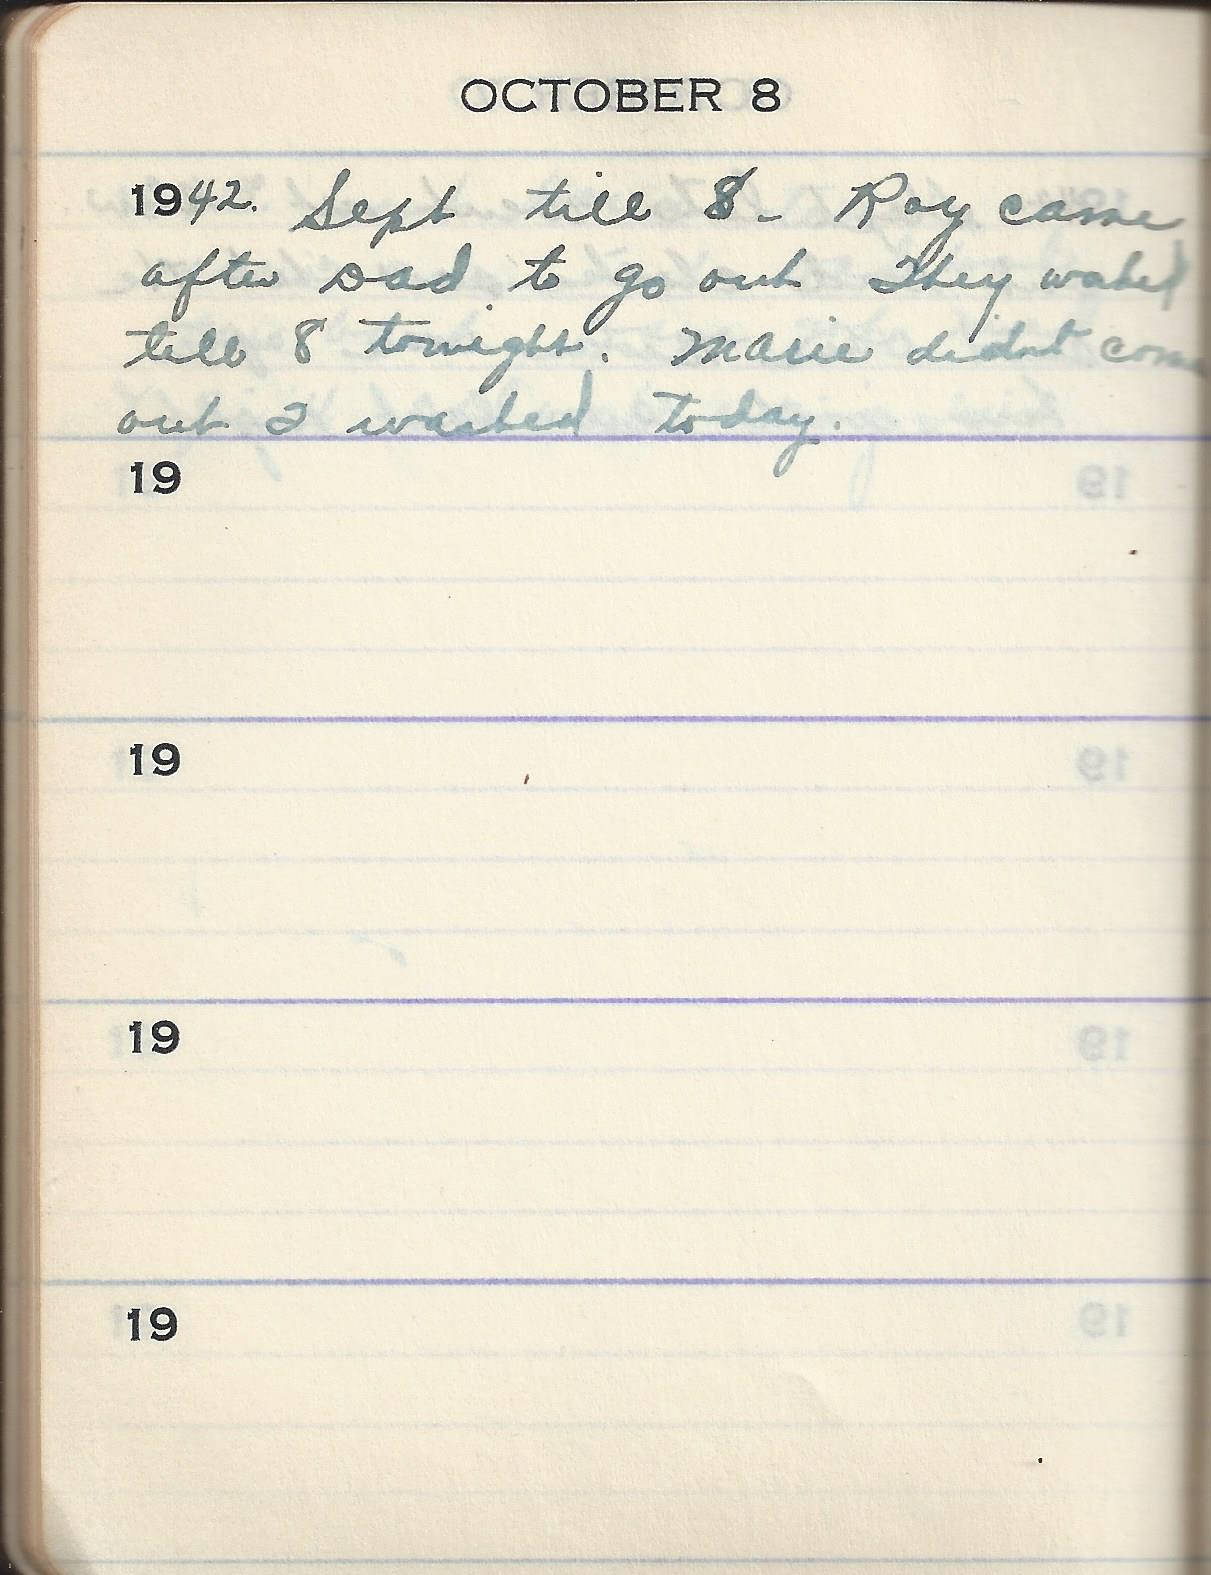 OCTOBER 8
1942. Sept till 8 - Roy came
after Dad to go out They worked
till 8 tonight. Marie didnt come
out I washed today.
19
19
19
19